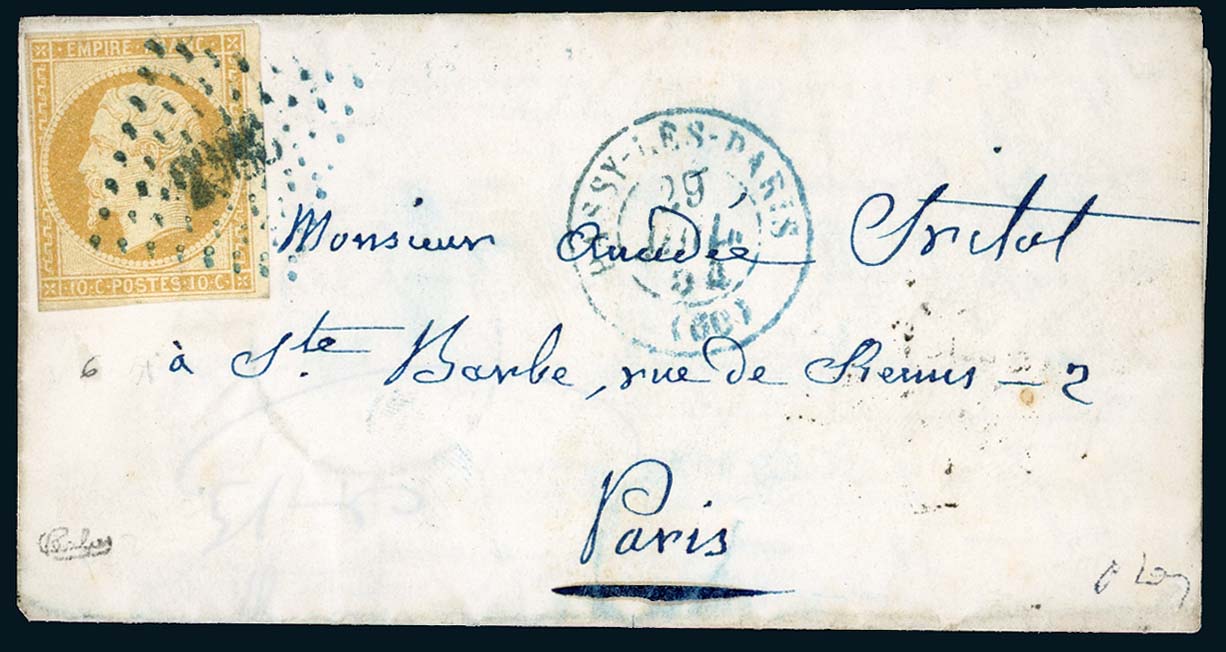 EMPIRE · FRANC ·
· 10 · C · POSTES · 10 · C ·
PASSY-LES-PARIS
29
54
(60)
Monsieur Amédée
à Ste Barbe, rue de Reims - 2
Paris
6